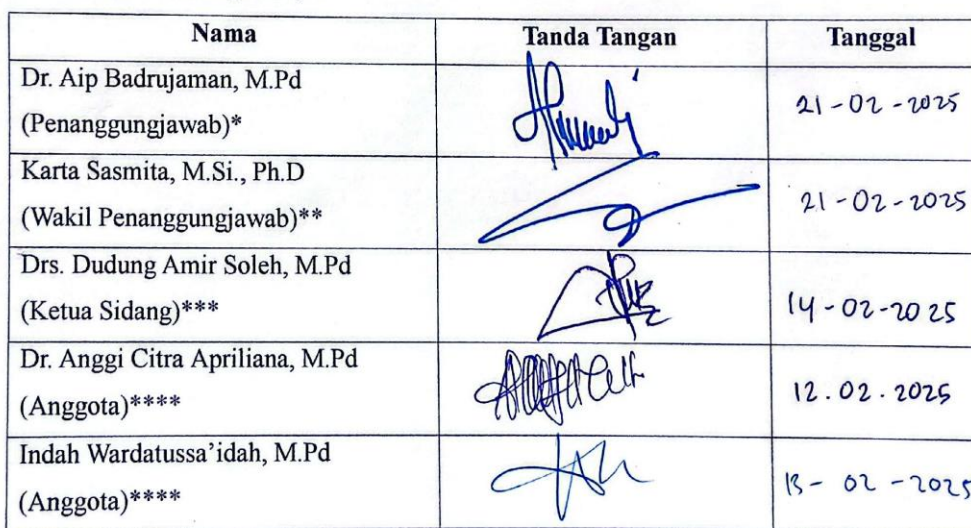 Nama Tanda Tangan Tanggal
Dr. Aip Badrujaman, M.Pd
(Penanggungjawab)* 21-02-2025
Karta Sasmita, M.Si., Ph.D
(Wakil Penanggungjawab)** 21-02-2025
Drs. Dudung Amir Soleh, M.Pd
(Ketua Sidang)*** 14-02-2025
Dr. Anggi Citra Apriliana, M.Pd
(Anggota)**** 12.02.2025
Indah Wardatussa’idah, M.Pd
(Anggota)**** 13-02-2025